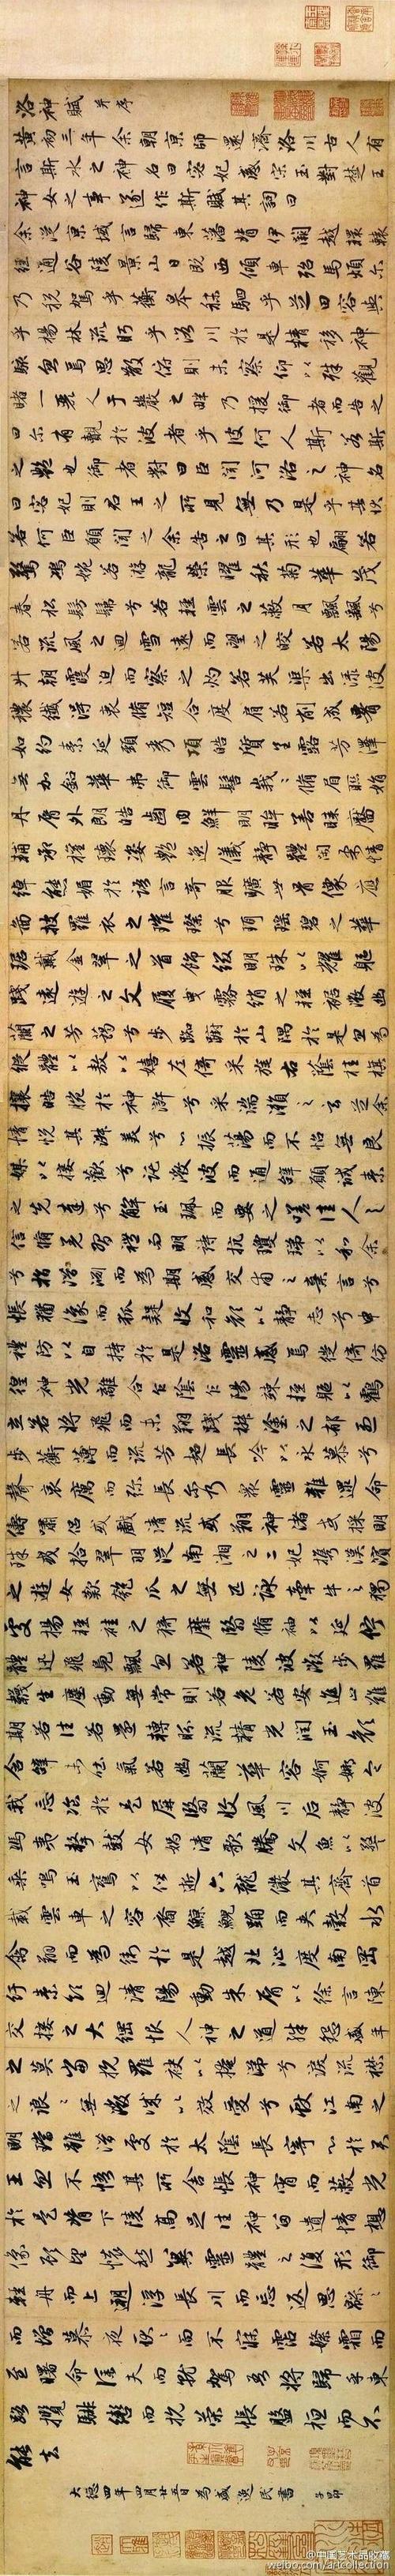 洛神賦 并序
黃初三年余朝京師還濟洛川古人有
言斯水之神名曰宓妃感宋玉對楚王
神女之事遂作斯賦其詞曰
余從京域言歸東藩背伊闕越轘轅
經通谷陵景山日既西傾車殆馬煩尓
乃稅駕乎蘅皋秣駟乎芝田容與
乎楊林流眄乎洛川於是精移神
駭忽焉思散俯則未察仰以殊觀
睹一麗人于巖之畔乃援御者而告之
曰尓有覿於彼者乎彼何人斯若斯
之艷也御者對曰臣聞河洛之神名
曰宓妃則君王之所見無乃是乎其狀
若何臣願聞之余告之曰其形也翩若
驚鴻婉若游龍榮曜秋菊華茂
春松髣髴兮若輕雲之蔽月飄飄兮
若流風之迴雪遠而望之皎若太陽
升朝霞迫而察之灼若芙蕖出淥波
穠纖得衷脩短合度肩若削成腰
如約素延頸秀項皓質呈露芳澤
無加鉛華弗御雲髻峩峩脩眉聯娟
丹脣外朗皓齒内鮮明眸善睞靨
輔承權瓌姿艷逸儀靜體閑柔情
綽態媚於語言奇服曠世骨像應
圖披羅衣之璀璨兮珥瑤碧之華
琚戴金翠之首飾綴明珠以耀軀
踐遠遊之文履曳霧綃之輕裾微幽
蘭之芳藹兮步踟躕於山隅於是忽焉
縱體以敖以嬉左倚采旄右蔭桂旗
攘皓腕於神滸兮采湍瀨之玄芝余
情悅其淑美兮心振蕩而不怡無良
媒以接歡兮託微波而通辭願誠素
之先達兮解玉珮而要之嗟佳人之
信脩羌習禮而明詩抗瓊珶以和余
兮指潛淵而為期感交甫之棄言兮
悵猶豫而狐疑收和顏以靜志兮申
禮防以自持於是洛靈感焉徙倚彷
徨神光離合乍陰乍陽竦輕軀以鶴
立若將飛而未翔踐椒塗之郁烈
步蘅薄而流芳超長吟以永慕兮
聲哀厲而弥長尓乃衆靈雜遝命
儔嘯侶或戲清流或翔神渚或採明
珠或拾翠羽從南湘之二妃攜漢濱
之遊女歎匏瓜之無匹詠牽牛之獨
處揚輕袿之猗靡翳脩袖以延佇
體迅飛鳧飄忽若神陵波微步羅
韈生塵動無常則若危若安進止難
期若往若還轉眄流精光潤玉顏
含辭未吐氣若幽蘭華容婀娜令
我忘飡於是屏翳收風川后靜波
馮夷擊鼓女媧清歌騰文魚以警
乘鳴玉鸞以偕逝六龍儼其齊首
載雲車之容裔鯨鯢踊而夾轂水
禽翔而為衛於是越北沚度南岡
紆素領迴清陽動朱脣以徐言陳
交接之大綱恨人神之道殊怨盛年
之莫當抗羅袂以掩涕兮淚流襟
之浪浪無微情以效愛兮獻江南之
明璫雖潛處於太陰長寄心於君
王忽不悟其所舍悵神宵而蔽光
於是背下陵高足往神留遺情想
像顧望懷愁冀靈體之復形御
輕舟而上遡浮長川而忘返思緜緜
而增慕夜耿耿而不寐霑繁霜而
至曙命僕夫而就駕吾將歸乎東
路攬騑轡而抗策悵盤桓而不
能去
大德四年四月廿五日為盛逸民書 子昂
@中国艺术品收藏
weibo.com/artcollection